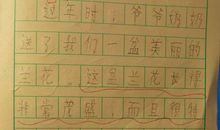 过年时，爷爷奶奶
送了我们一盆美丽的
兰花。这盆兰花长得
非常茂盛，而且很特